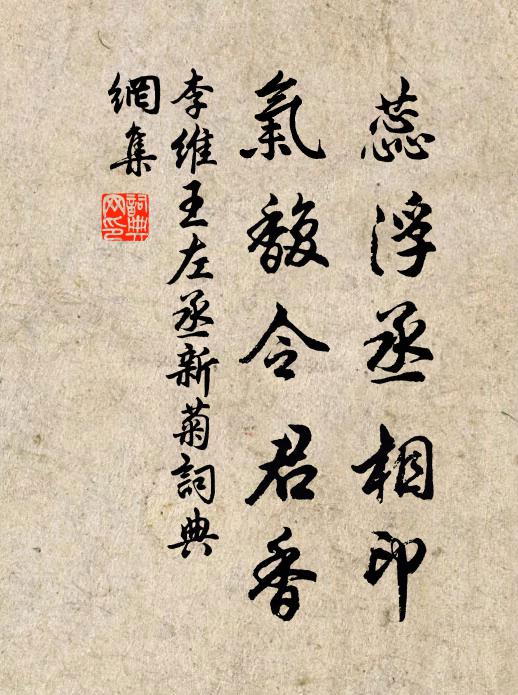 蕊浮丞相印
氣馥令君香
李維王左丞新菊詞典
網集
詞典
网印